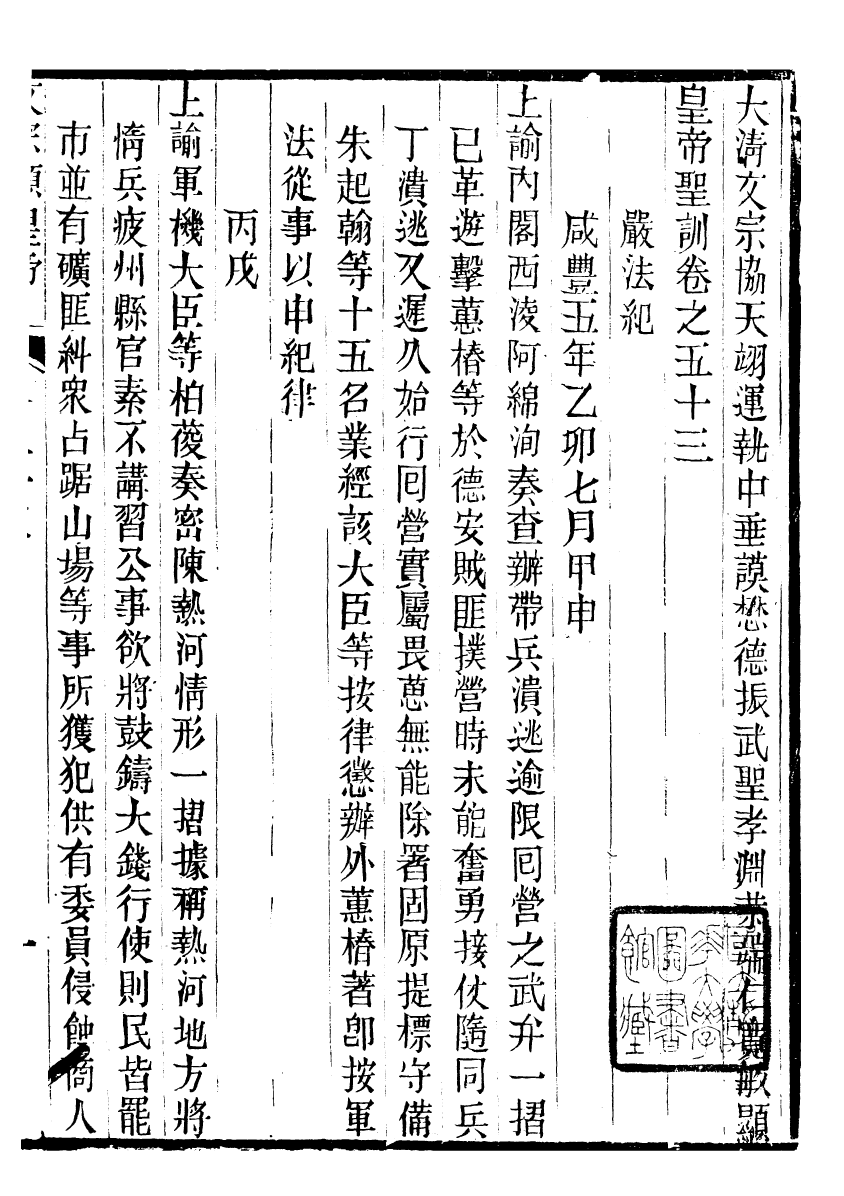 大清文宗協天翊運執中垂謨懋德振武聖孝淵恭端仁寬敏顯
皇帝聖訓卷之五十三
嚴法紀
咸豐五年乙卯七月甲申
上諭內閣西淩阿綿洵奏查辦帶兵潰逃逾限回營之武弁一摺
已革遊擊蕙椿等於德安賊匪撲營時未能奮勇接仗隨同兵
丁潰逃又遲久始行回營實屬畏葸無能除署固原提標守備
朱起翰等十五名業經該大臣等按律懲辦外蕙椿著卽按軍
法從事以申紀律
丙戌
上諭軍機大臣等柏葰奏密陳熱河情形一摺據稱熱河地方將
惰兵疲州縣官素不講習公事欲將鼓鑄大錢行使則民皆罷
市並有礦匪糾眾占踞山場等事所獲犯供有委員侵蝕商人
文宗顯皇帝
大學圖書館藏